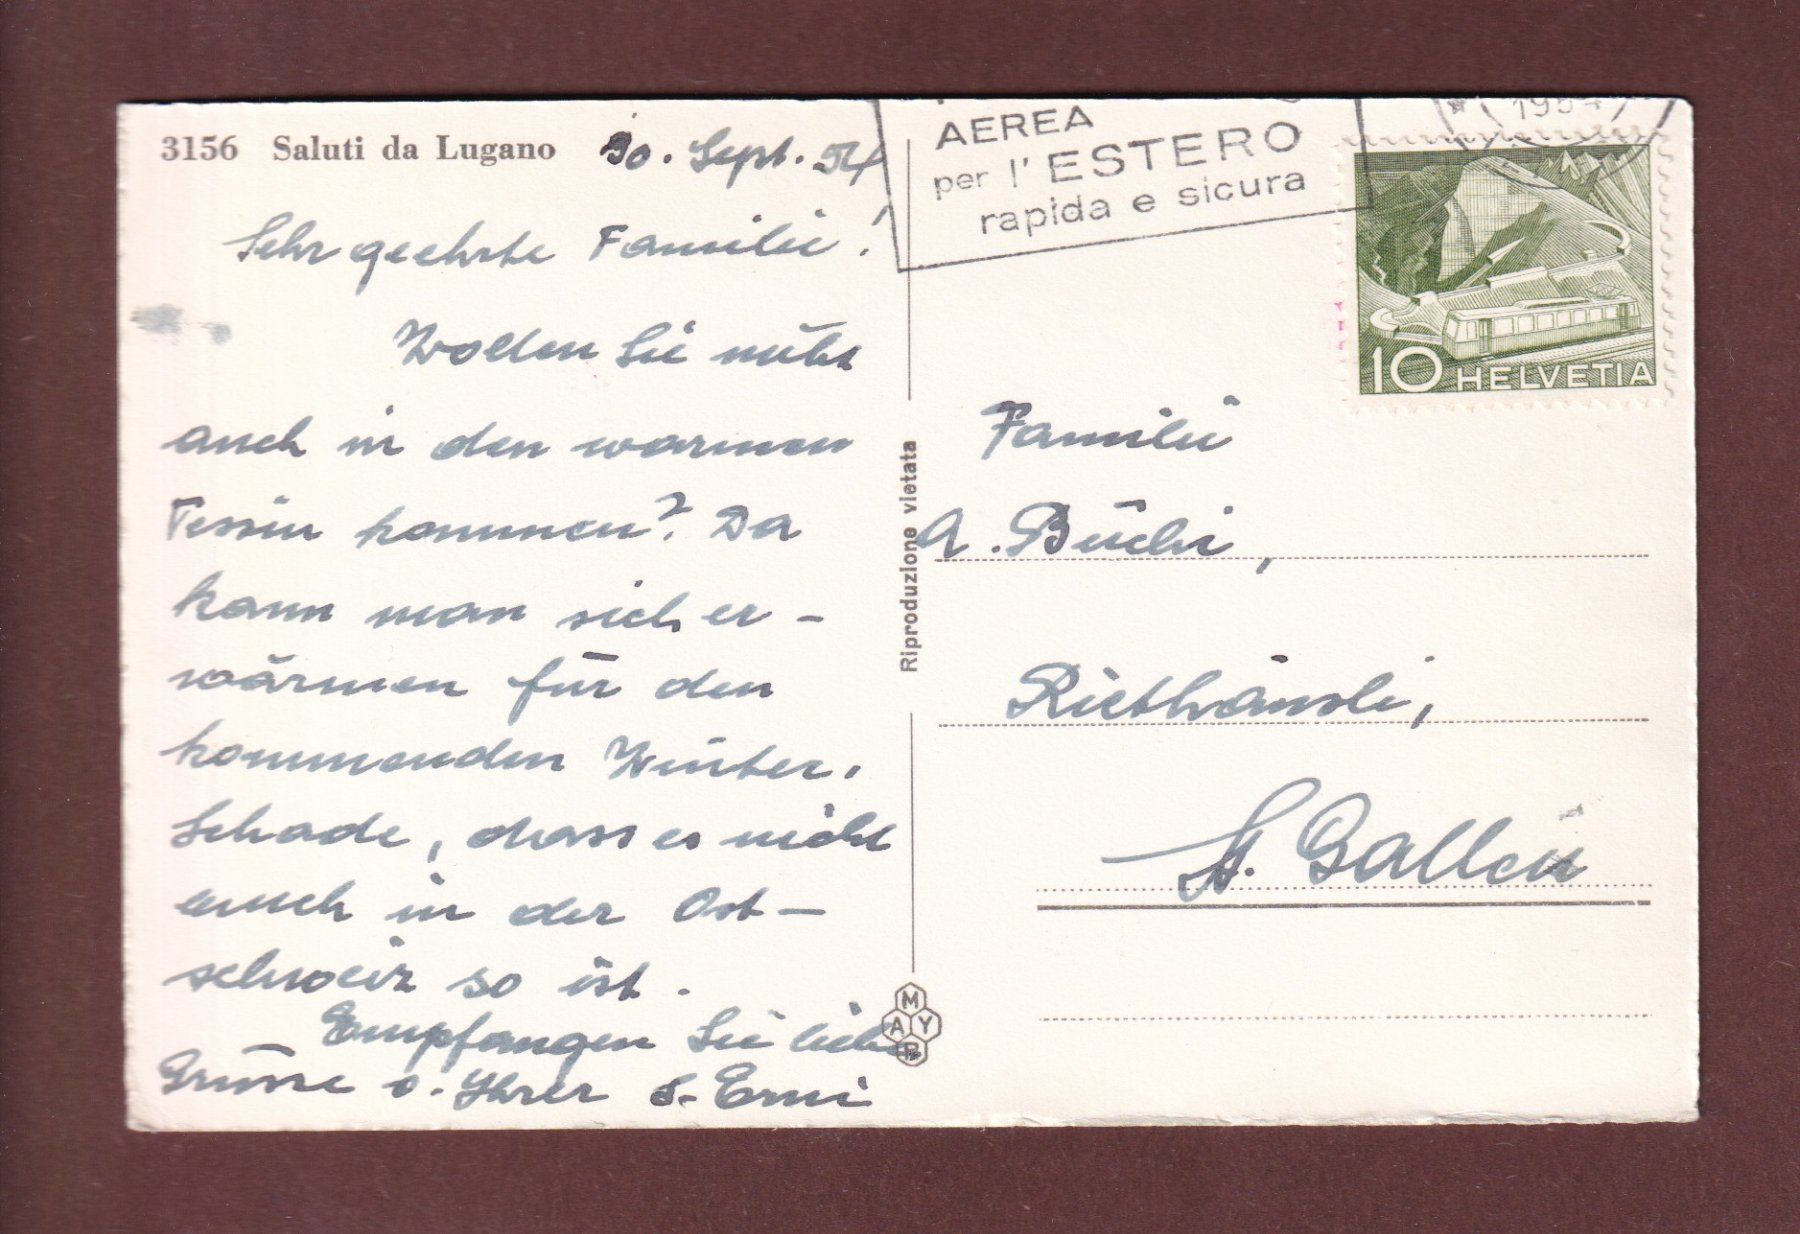 3156 Saluti da Lugano 30. Sept. 54
Sehr geehrte Familie!
Wollen Sie nicht
auch in den warmen
Tessin kommen? Da
kann man sich er-
wärmen für den
kommenden Winter.
Schade, dass es nicht
auch in der Ost-
schweiz so ist.
Empfangen Sie liebe
Grüsse v. Ihrer S. Erni
Riproduzione vietata
MAYR
AEREA
per l'ESTERO
rapida e sicura
1954
10 HELVETIA
Familie
A. Büchi,
Riethäusli,
St. Gallen